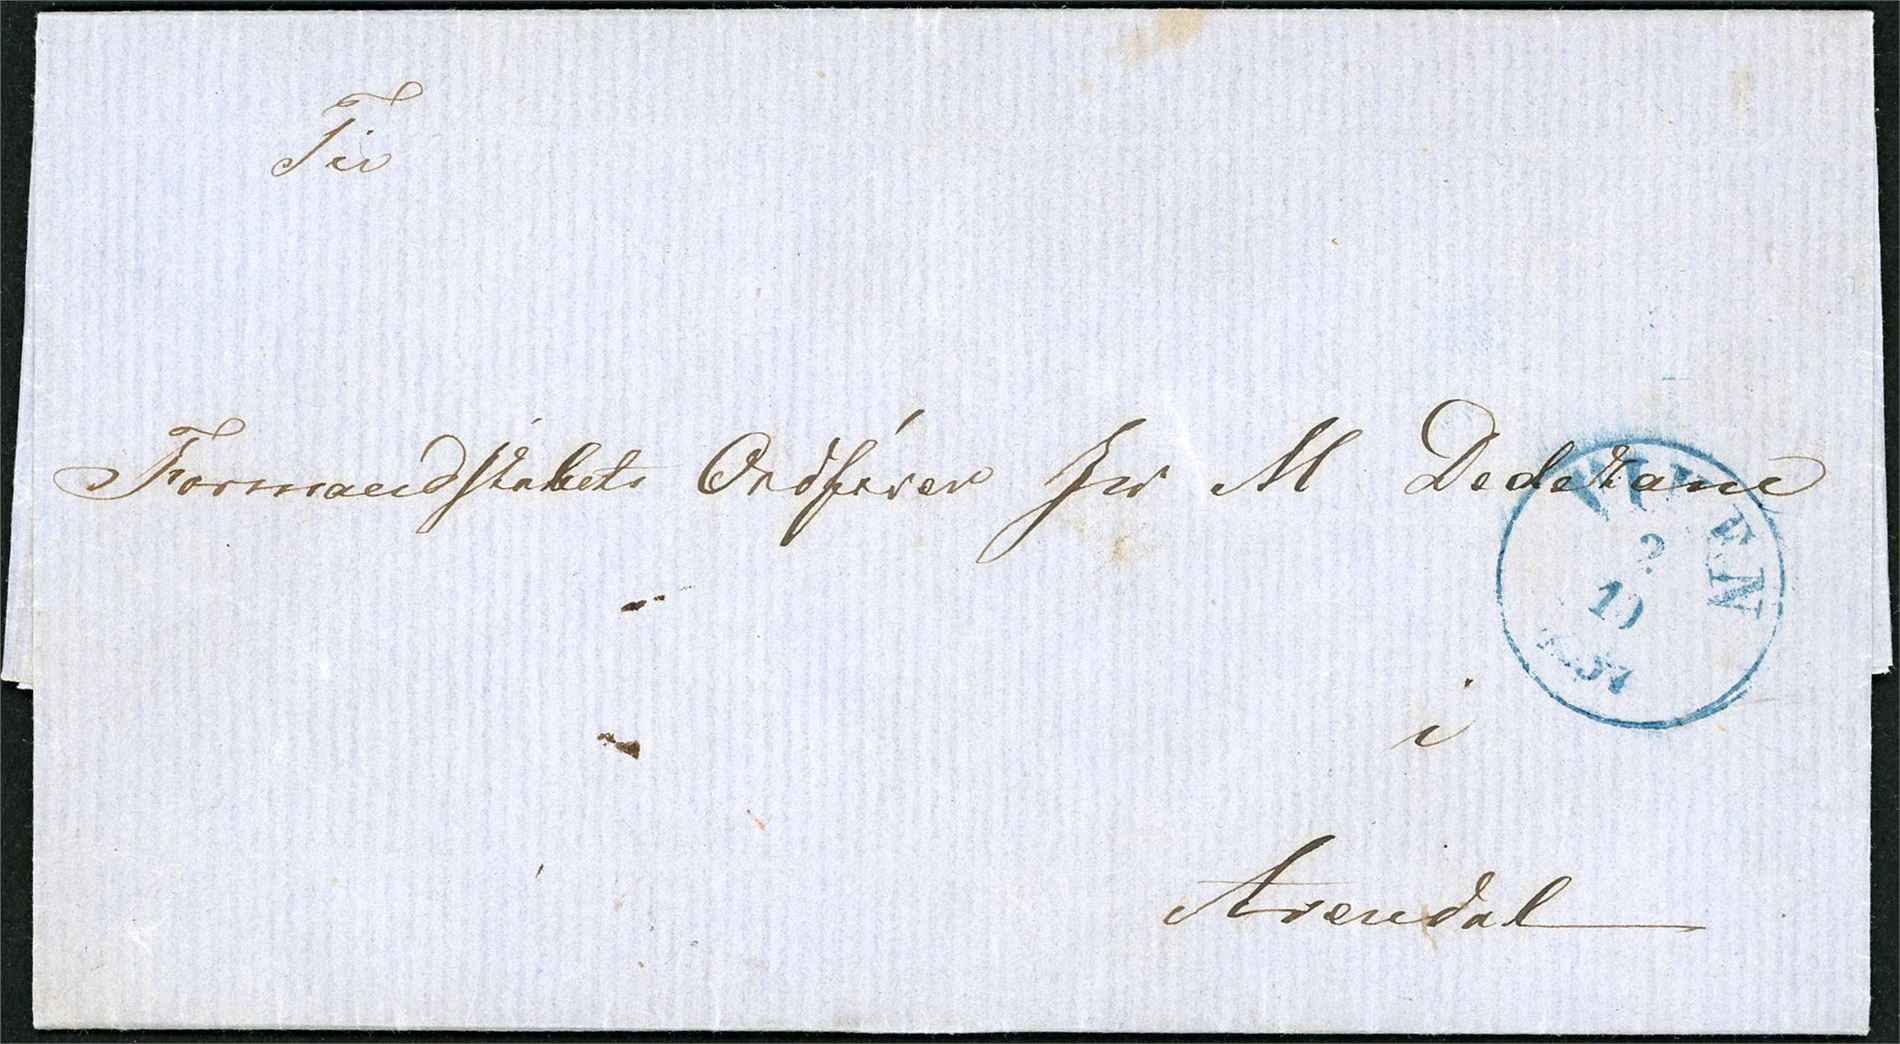 Til
Formandskabets Ordfører Hr M Dedekam
i
Arendal
2
10
1857